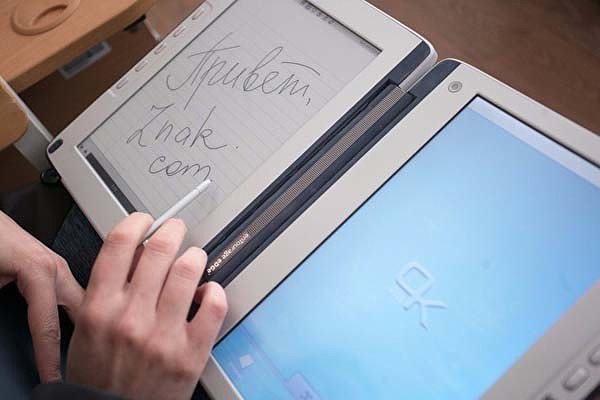 Привет,
Znak.
com
entourage eDGe